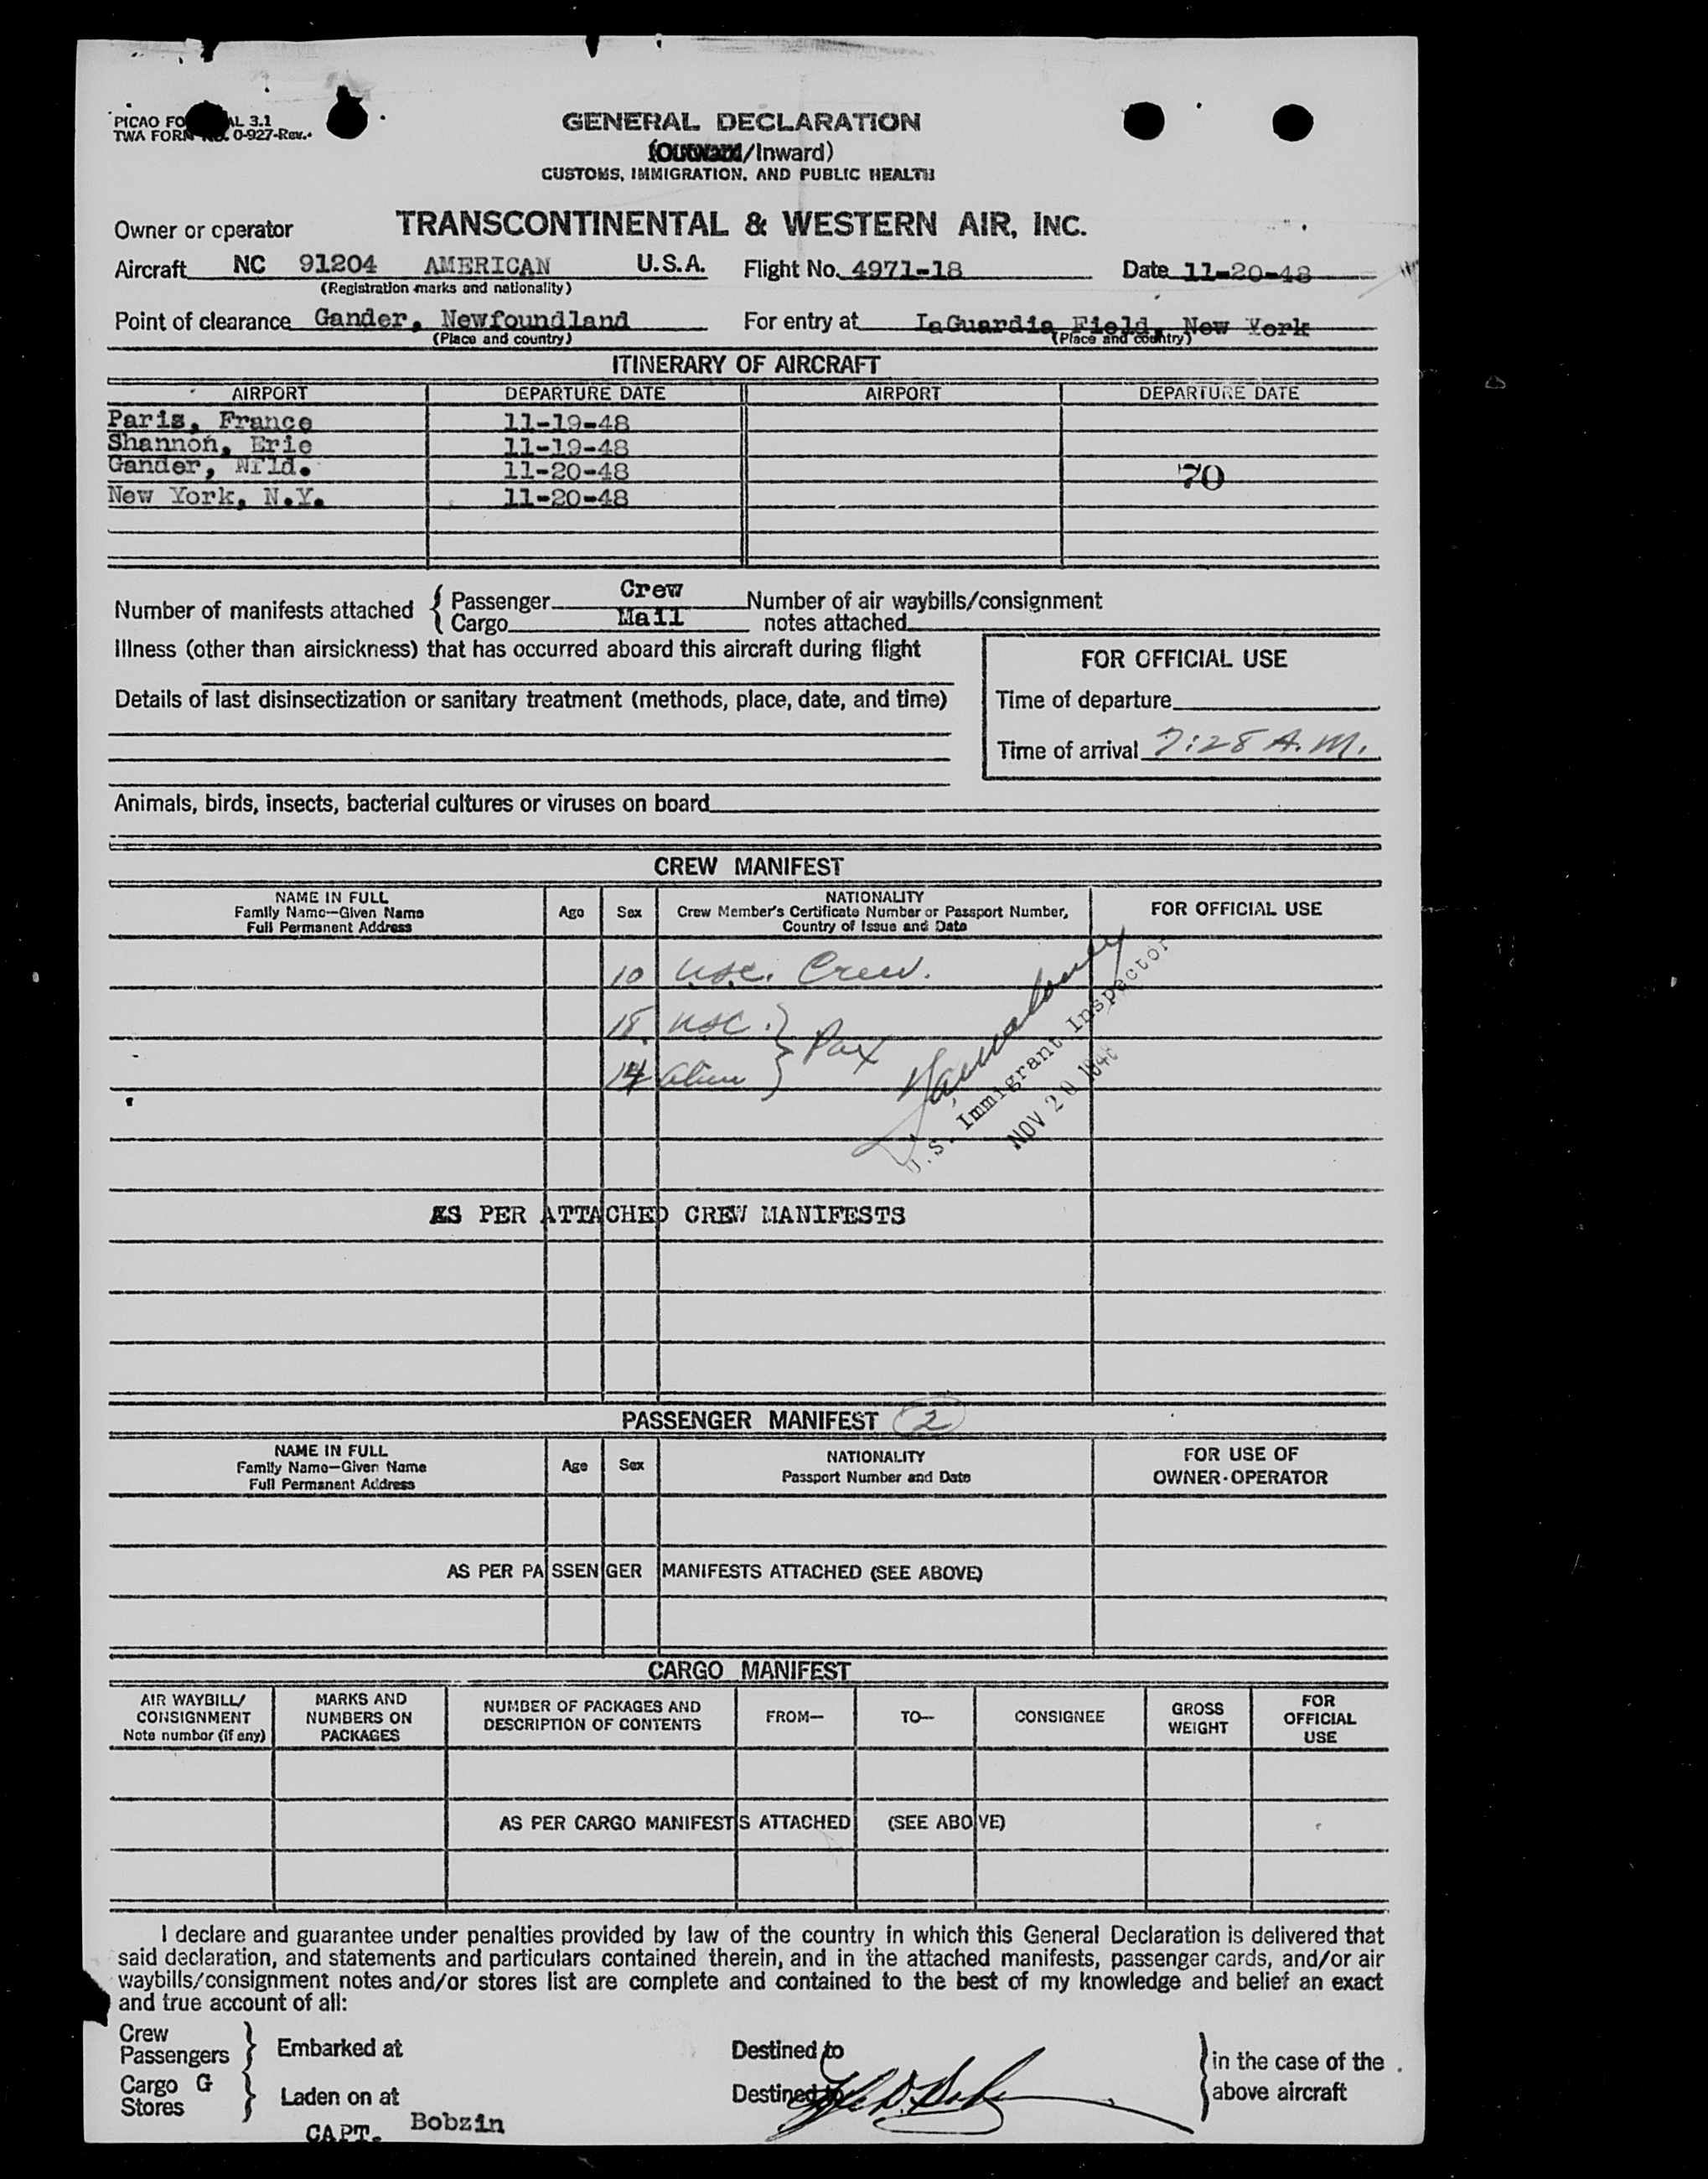 PICAO FO AL 3.1
TWA FORM NO. 0-927-Rev.
GENERAL DECLARATION
(Outward/Inward)
CUSTOMS, IMMIGRATION, AND PUBLIC HEALTH
Owner or operator TRANSCONTINENTAL & WESTERN AIR, INC.
Aircraft NC 91204 AMERICAN U.S.A. Flight No. 4971-18 Date 11-20-48
(Registration marks and nationality)
Point of clearance Gander, Newfoundland For entry at LaGuardia Field, New York
(Place and country) (Place and country)
ITINERARY OF AIRCRAFT
AIRPORT DEPARTURE DATE AIRPORT DEPARTURE DATE
Paris, France 11-19-48
Shannon, Erie 11-19-48
Gander, Nfld. 11-20-48 70
New York, N.Y. 11-20-48
Number of manifests attached { Passenger Crew Number of air waybills/consignment
Cargo Mail notes attached
Illness (other than airsickness) that has occurred aboard this aircraft during flight
FOR OFFICIAL USE
Details of last disinsectization or sanitary treatment (methods, place, date, and time) Time of departure
Time of arrival 7:28 A.M.
Animals, birds, insects, bacterial cultures or viruses on board
CREW MANIFEST
NAME IN FULL
Family Name—Given Name
Full Permanent Address
Age Sex
NATIONALITY
Crew Member's Certificate Number or Passport Number,
Country of Issue and Date
FOR OFFICIAL USE
10 USC. Crew.
18 USC. } Pax
14 alien
U.S. Immigrant Inspector
NOV 20 1948
AS PER ATTACHED CREW MANIFESTS
PASSENGER MANIFEST 2
NAME IN FULL
Family Name—Given Name
Full Permanent Address
Age Sex
NATIONALITY
Passport Number and Date
FOR USE OF
OWNER-OPERATOR
AS PER PASSENGER MANIFESTS ATTACHED (SEE ABOVE)
CARGO MANIFEST
AIR WAYBILL/
CONSIGNMENT
Note number (if any)
MARKS AND
NUMBERS ON
PACKAGES
NUMBER OF PACKAGES AND
DESCRIPTION OF CONTENTS
FROM— TO— CONSIGNEE
GROSS
WEIGHT
FOR
OFFICIAL
USE
AS PER CARGO MANIFESTS ATTACHED (SEE ABOVE)
I declare and guarantee under penalties provided by law of the country in which this General Declaration is delivered that
said declaration, and statements and particulars contained therein, and in the attached manifests, passenger cards, and/or air
waybills/consignment notes and/or stores list are complete and contained to the best of my knowledge and belief an exact
and true account of all:
Crew
Passengers } Embarked at Destined to
Cargo G
Stores } Laden on at Destined to
} in the case of the
above aircraft
CAPT. Bobzin